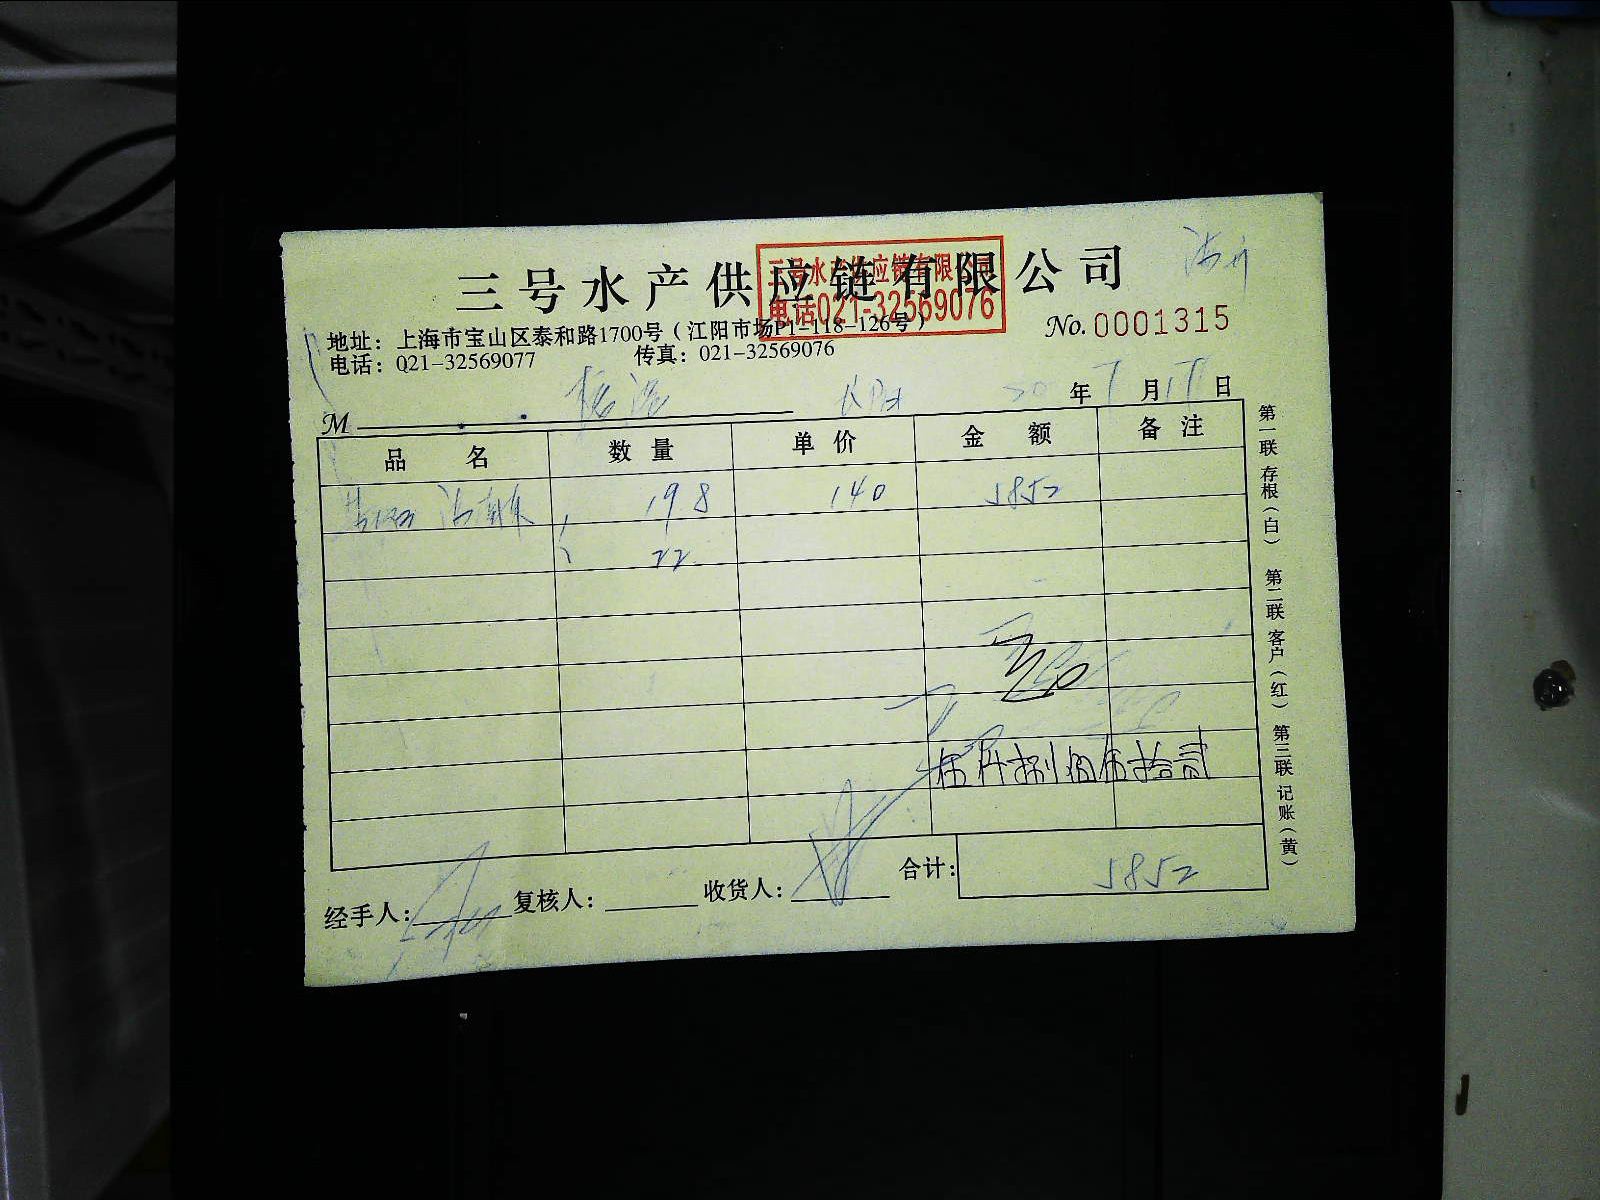 三号水产供应链有限公司
三号水产供应链有限公司
电话021-32569076
地址：上海市宝山区泰和路1700号（江阳市场P1-118-126号）
No.0001315
电话：021-32569077 传真：021-32569076
年7月17日
M
品名 数量 单价 金额 备注
198 140 5852
22
伍仟捌佰伍拾贰
合计：5852
经手人： 复核人： 收货人：
第一联存根（白） 第二联客户（红） 第三联记账（黄）